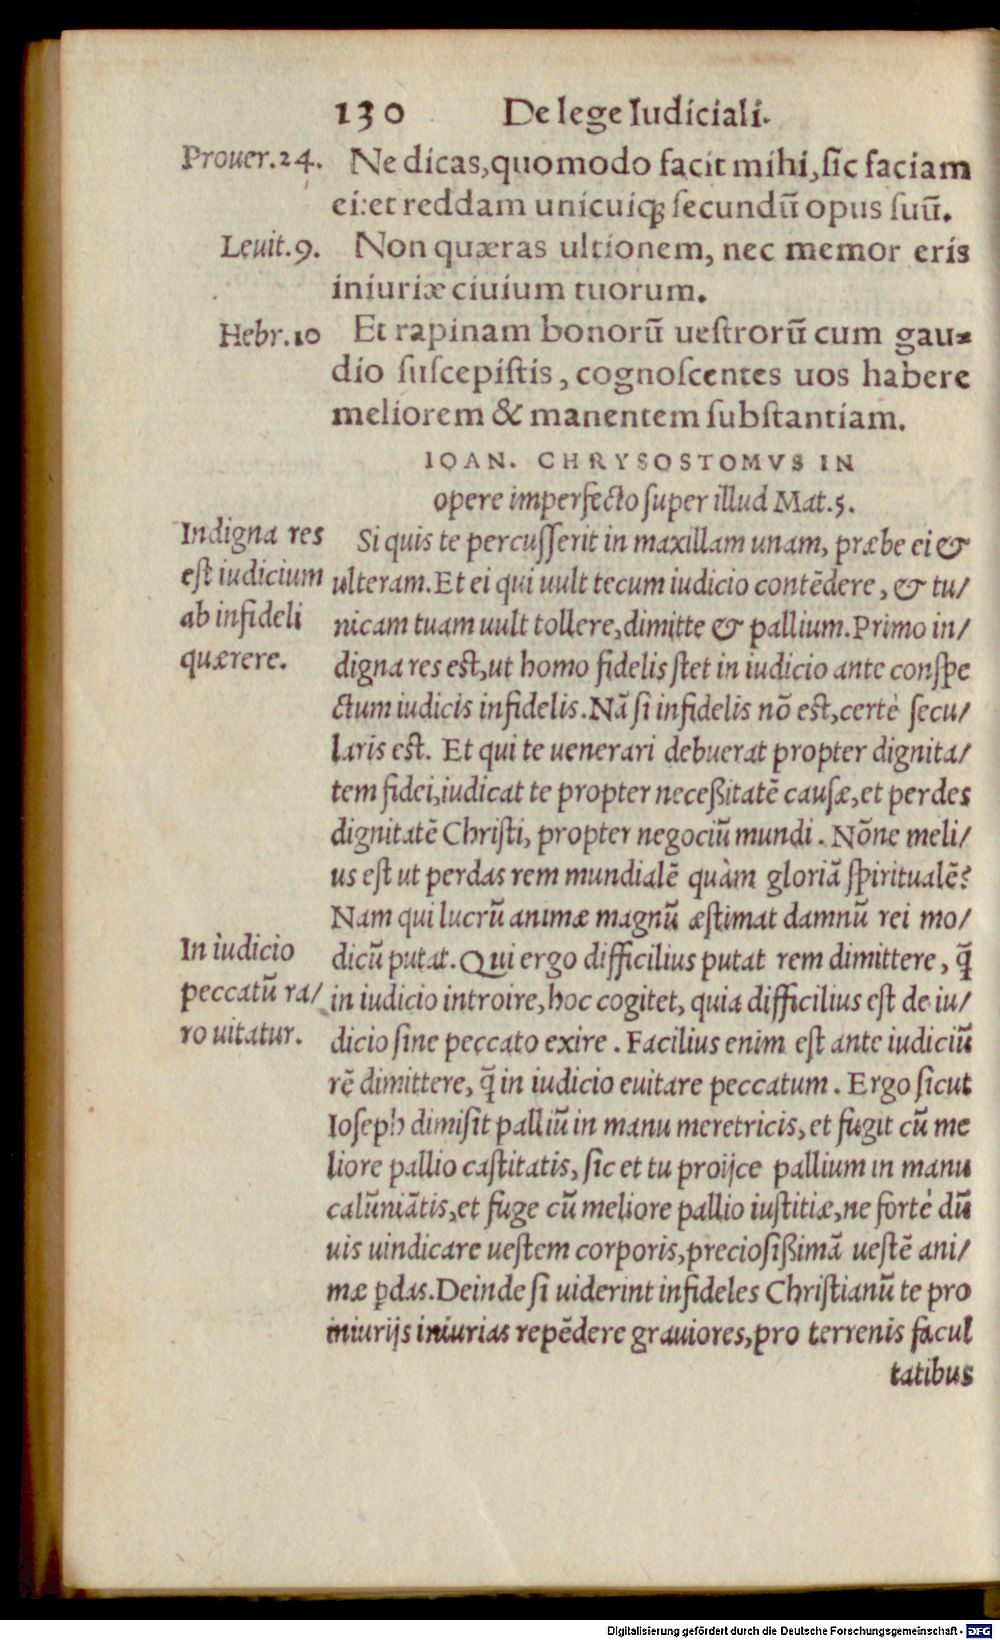 130 De lege Iudiciali.
Prouer.24. Ne dicas, quomodo facit mihi, sic faciam
ei: et reddam unicuiqꝫ secundū opus suū.
Leuit.9. Non quæras ultionem, nec memor eris
iniuriæ ciuium tuorum.
Hebr.10 Et rapinam bonorū uestrorū cum gau=
dio suscepistis, cognoscentes uos habere
meliorem & manentem substantiam.
IOAN. CHRYSOSTOMVS IN
opere imperfecto super illud Mat.5.
Indigna res
est iudicium
ab infideli
quærere.
Si quis te percusserit in maxillam unam, præbe ei &
ulteram. Et ei qui uult tecum iudicio contēdere, & tu/
nicam tuam uult tollere, dimitte & pallium. Primo in/
digna res est, ut homo fidelis stet in iudicio ante conspe
ctum iudicis infidelis. Nā si infidelis nō est, certè secu/
laris est. Et qui te uenerari debuerat propter dignita/
tem fidei, iudicat te propter neceßitatē causæ, et perdes
dignitatē Christi, propter negociū mundi. Nōne meli/
us est ut perdas rem mundialē quàm gloriā spiritualē?
Nam qui lucrū animæ magnū æstimat damnū rei mo/
In iudicio
peccatū ra/
ro uitatur.
dicū putat. Qui ergo difficilius putat rem dimittere, q̄
in iudicio introire, hoc cogitet, quia difficilius est de iu/
dicio sine peccato exire. Facilius enim est ante iudiciū
rē dimittere, q̄ in iudicio euitare peccatum. Ergo sicut
Ioseph dimisit palliū in manu meretricis, et fugit cū me
liore pallio castitatis, sic et tu proijce pallium in manu
calūniātis, et fuge cū meliore pallio iustitiæ, ne fortè dū
uis uindicare uestem corporis, preciosißimā uestē ani/
mæ ꝑdas. Deinde si uiderint infideles Christianū te pro
iniurijs iniurias repēdere grauiores, pro terrenis facul
tatibus
Digitalisierung gefördert durch die Deutsche Forschungsgemeinschaft - DFG